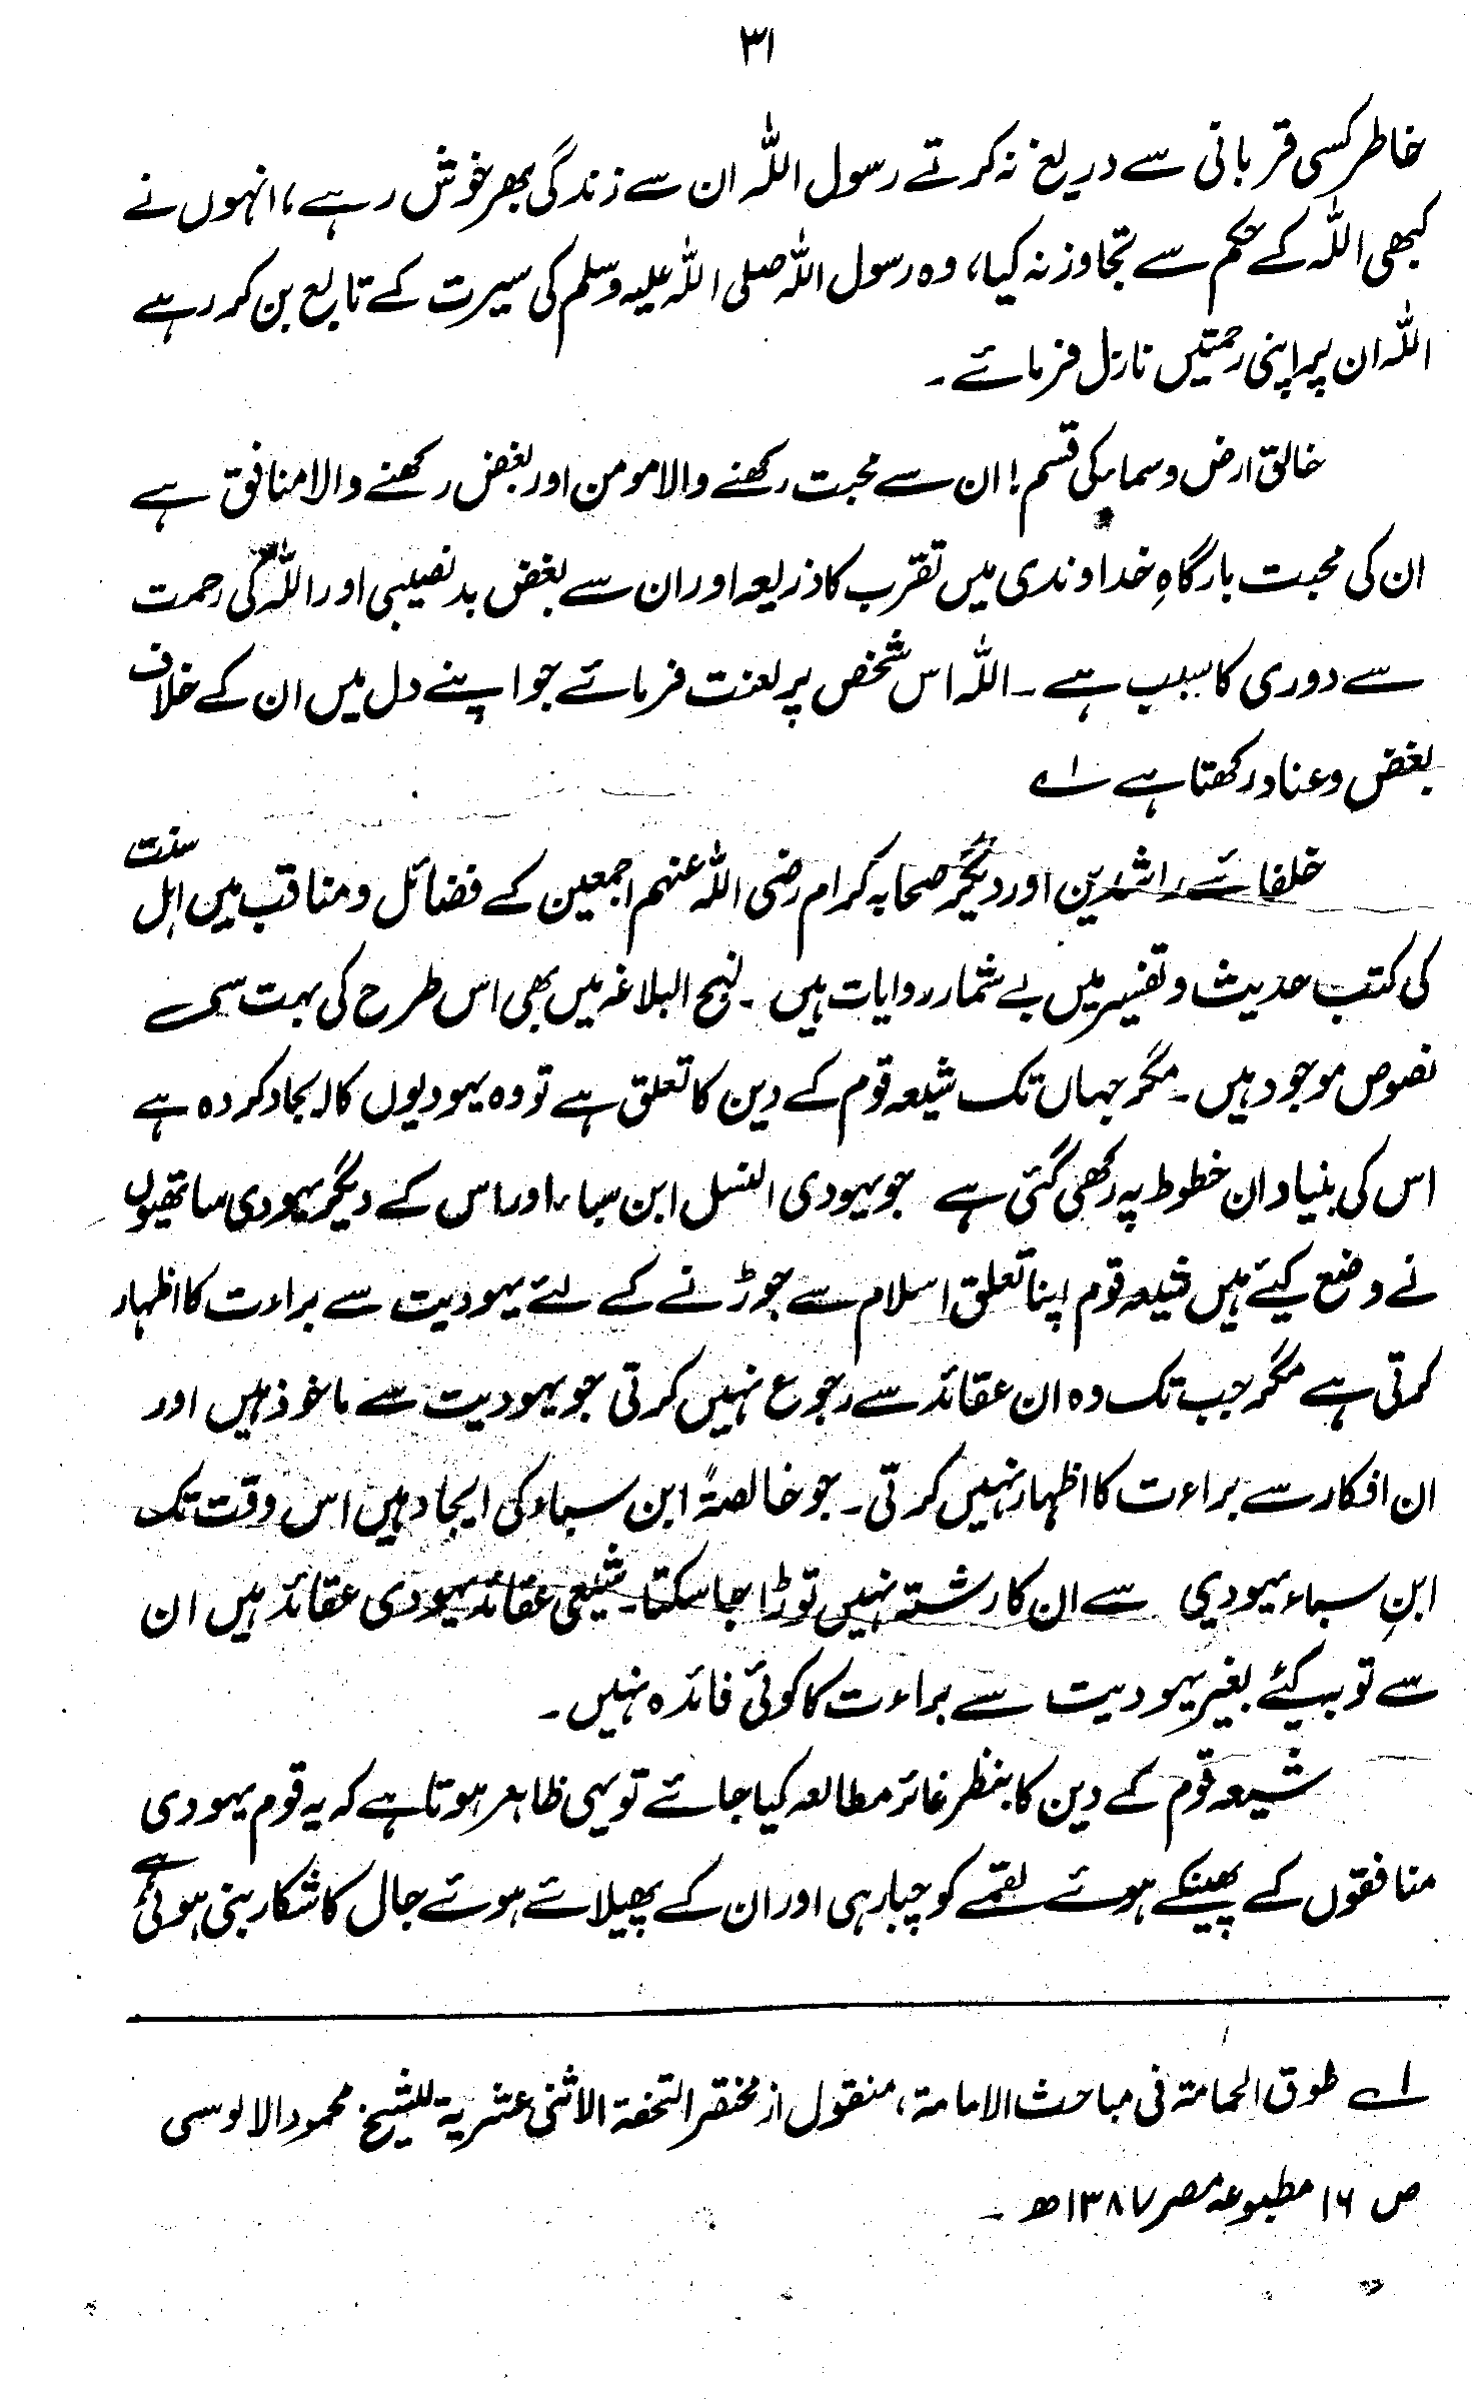 ۳۱
خاطر کسی قربانی سے دریغ نہ کرتے رسول اللہ ان سے زندگی بھر خوش رہے، انہوں نے
کبھی اللہ کے حکم سے تجاوز نہ کیا، وہ رسول اللہ صلی اللہ علیہ وسلم کی سیرت کے تابع بن کر رہے
اللہ ان پر اپنی رحمتیں نازل فرمائے ۔
خالق ارض و سماء کی قسم ! ان سے محبت رکھنے والا مومن اور بغض رکھنے والا منافق ہے
ان کی محبت بارگاہِ خداوندی میں تقرب کا ذریعہ اور ان سے بغض بدنصیبی اور اللہ کی رحمت
سے دوری کا سبب ہے ۔ اللہ اس شخص پر لعنت فرمائے جو اپنے دل میں ان کے خلاف
بغض و عناد رکھتا ہے ۱ے
خلفائے راشدین اور دیگر صحابہ کرام رضی اللہ عنہم اجمعین کے فضائل و مناقب میں اہل سنت
کی کتب حدیث و تفسیر میں بے شمار روایات ہیں ۔ نہج البلاغہ میں بھی اس طرح کی بہت سی
نصوص موجود ہیں ۔ مگر جہاں تک شیعہ قوم کے دین کا تعلق ہے تو وہ یہودیوں کا ایجاد کردہ ہے
اس کی بنیاد ان خطوط پہ رکھی گئی ہے جو یہودی النسل ابن سباء اور اس کے دیگر یہودی ساتھیوں
نے وضع کیئے ہیں شیعہ قوم اپنا تعلق اسلام سے جوڑنے کے لئے یہودیت سے براءت کا اظہار
کرتی ہے مگر جب تک وہ ان عقائد سے رجوع نہیں کرتی جو یہودیت سے ماخوذ ہیں اور
ان افکار سے براءت کا اظہار نہیں کرتی ۔ جو خالصۃً ابن سباء کی ایجاد ہیں اس وقت تک
ابنِ سباء یہودی سے ان کا رشتہ نہیں توڑا جا سکتا ۔ شیعی عقائد یہودی عقائد ہیں ان
سے توبہ کیئے بغیر یہودیت سے براءت کا کوئی فائدہ نہیں ۔
شیعہ قوم کے دین کا بنظر غائر مطالعہ کیا جائے تو یہی ظاہر ہوتا ہے کہ یہ قوم یہودی
منافقوں کے پھینکے ہوئے لقمے کو چبا رہی اور ان کے پھیلائے ہوئے جال کا شکار بنی ہوئی ہے
۱ے طوق الحمامۃ فی مباحث الامامۃ، منقول از مختصر التحفۃ الاثنی عشریۃ للشیخ محمود الالوسی
ص ۱۶ مطبوعہ مصر ۱۳۸۷ھ ۔